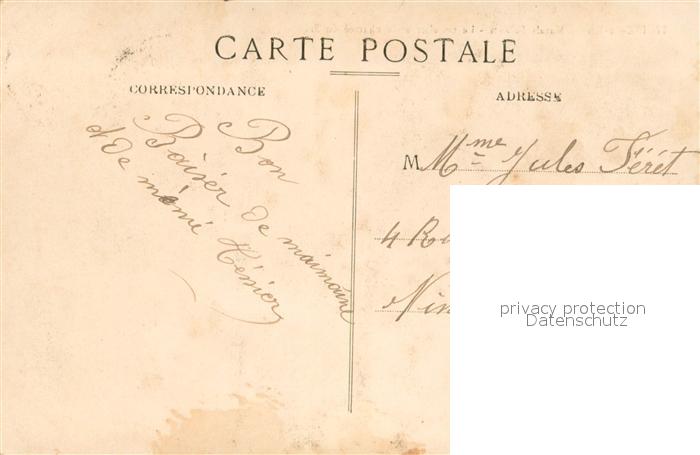 CARTE POSTALE
CORRESPONDANCE
Bon
Baiser de maimanne
et de mémé Ténier
ADRESSE
M Mme Jules Féret
4 Ru
Nim
privacy protection
Datenschutz